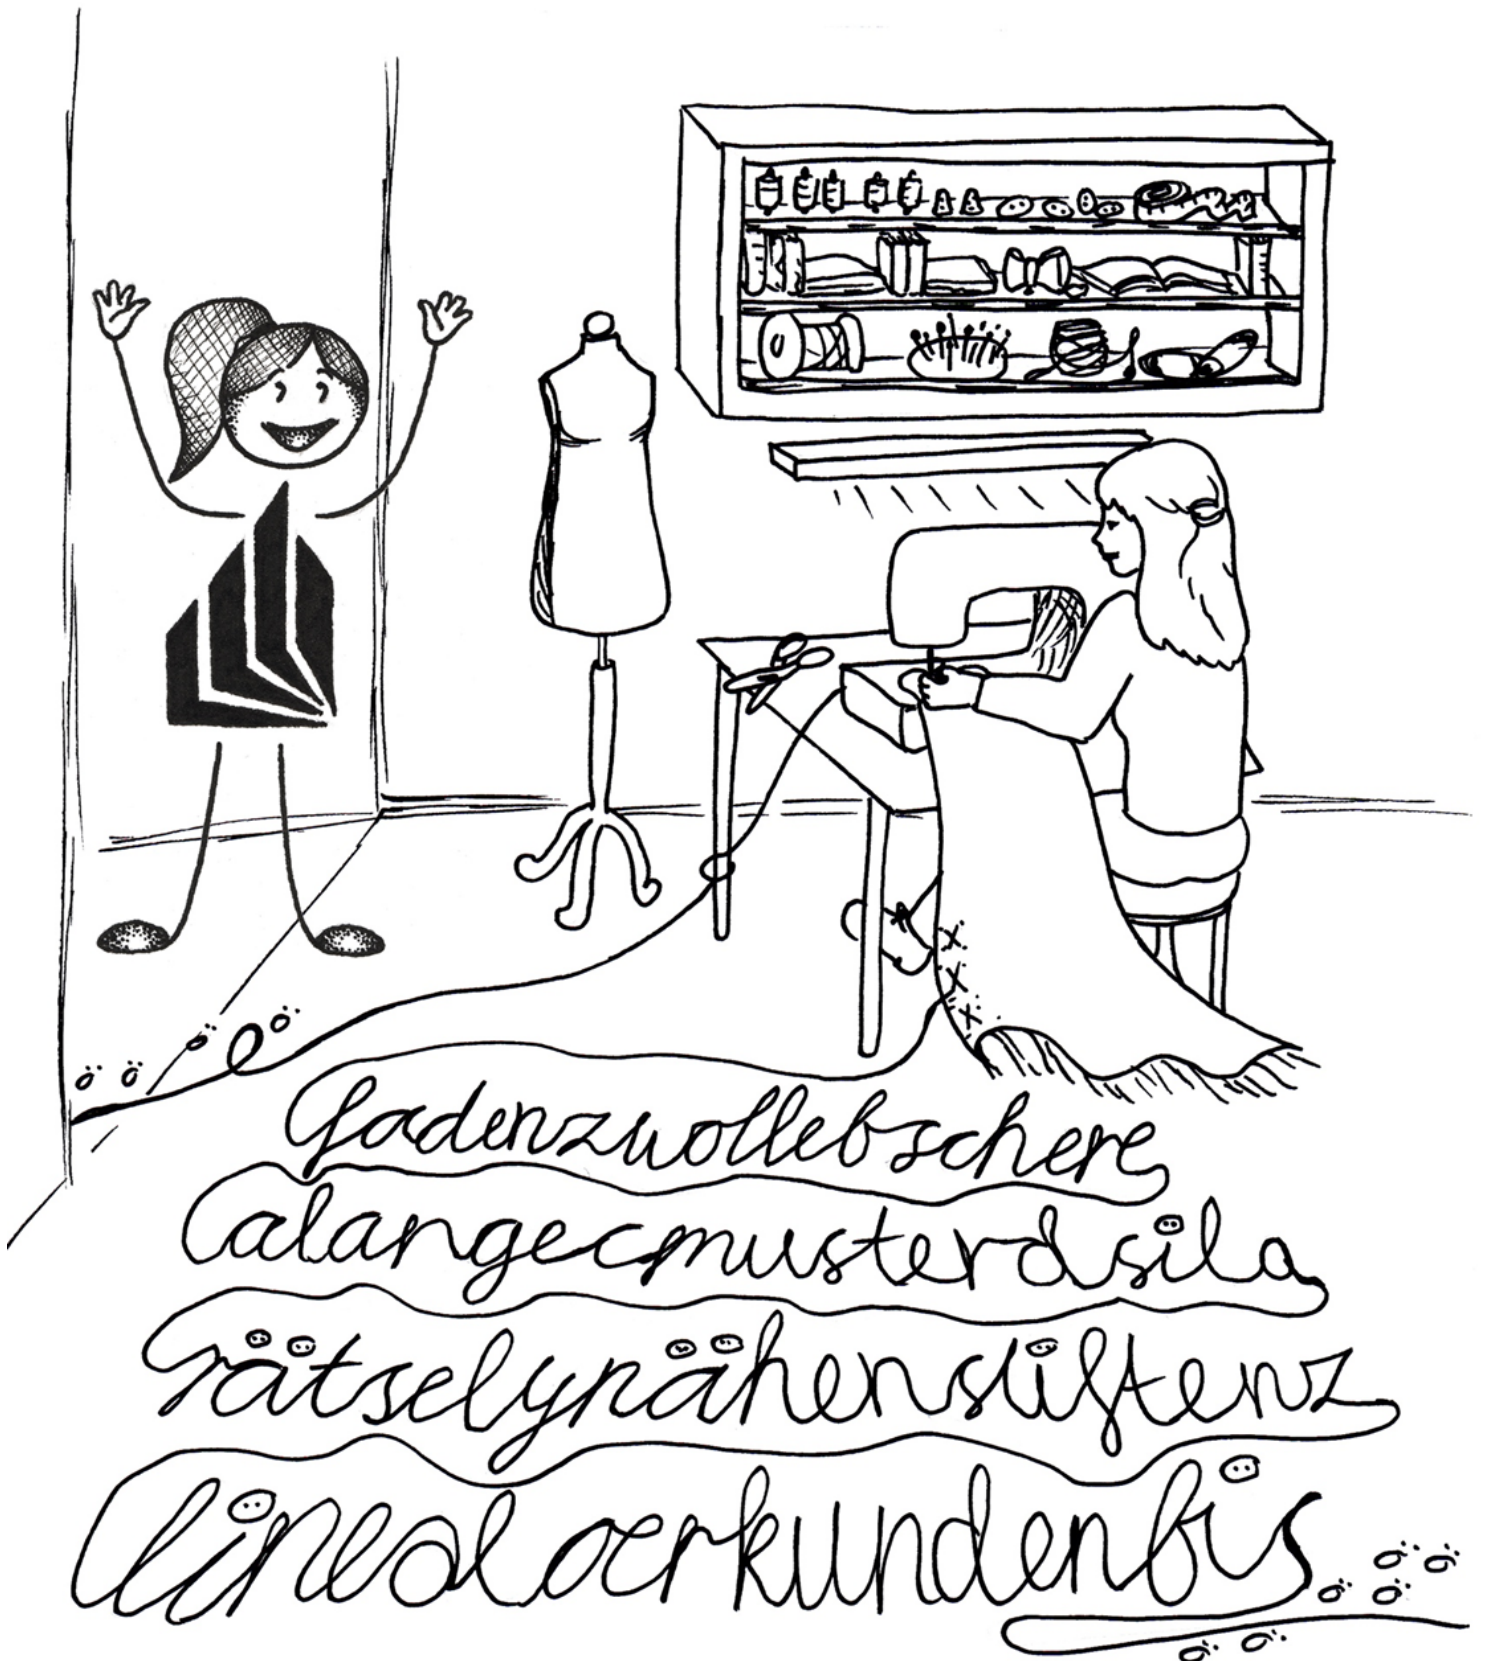 fadenzwollebschere
alangecmusterdsila
rätselynähenstiftenz
linealoerkundenbis